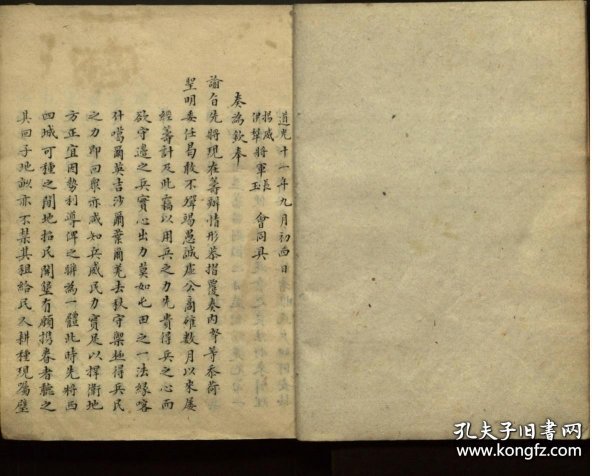 道光十一年九月初四日
揚威將軍長
參贊將軍玉 會同具
奏為欽奉
諭旨先將現在籌辦情形恭摺覆奏內 等忝荷
聖明委任曷敢不殫竭愚誠虛公商確數月以來屢
經籌計及此竊以用兵之力先貴得兵之心而
欲守邊之兵實心出力莫如屯田之一法緣喀
什噶爾英吉沙爾葉爾羌去秋守禦極得兵民
之力即回眾亦咸知兵威民力實足以捍衛地
方正宜因勢利導俾之聯為一體此時先將西
四城可種之閒地招民開墾有願攜眷者聽之
其回子地畝亦不禁其租給民人耕種現屬
孔夫子旧书网
www.kongfz.com